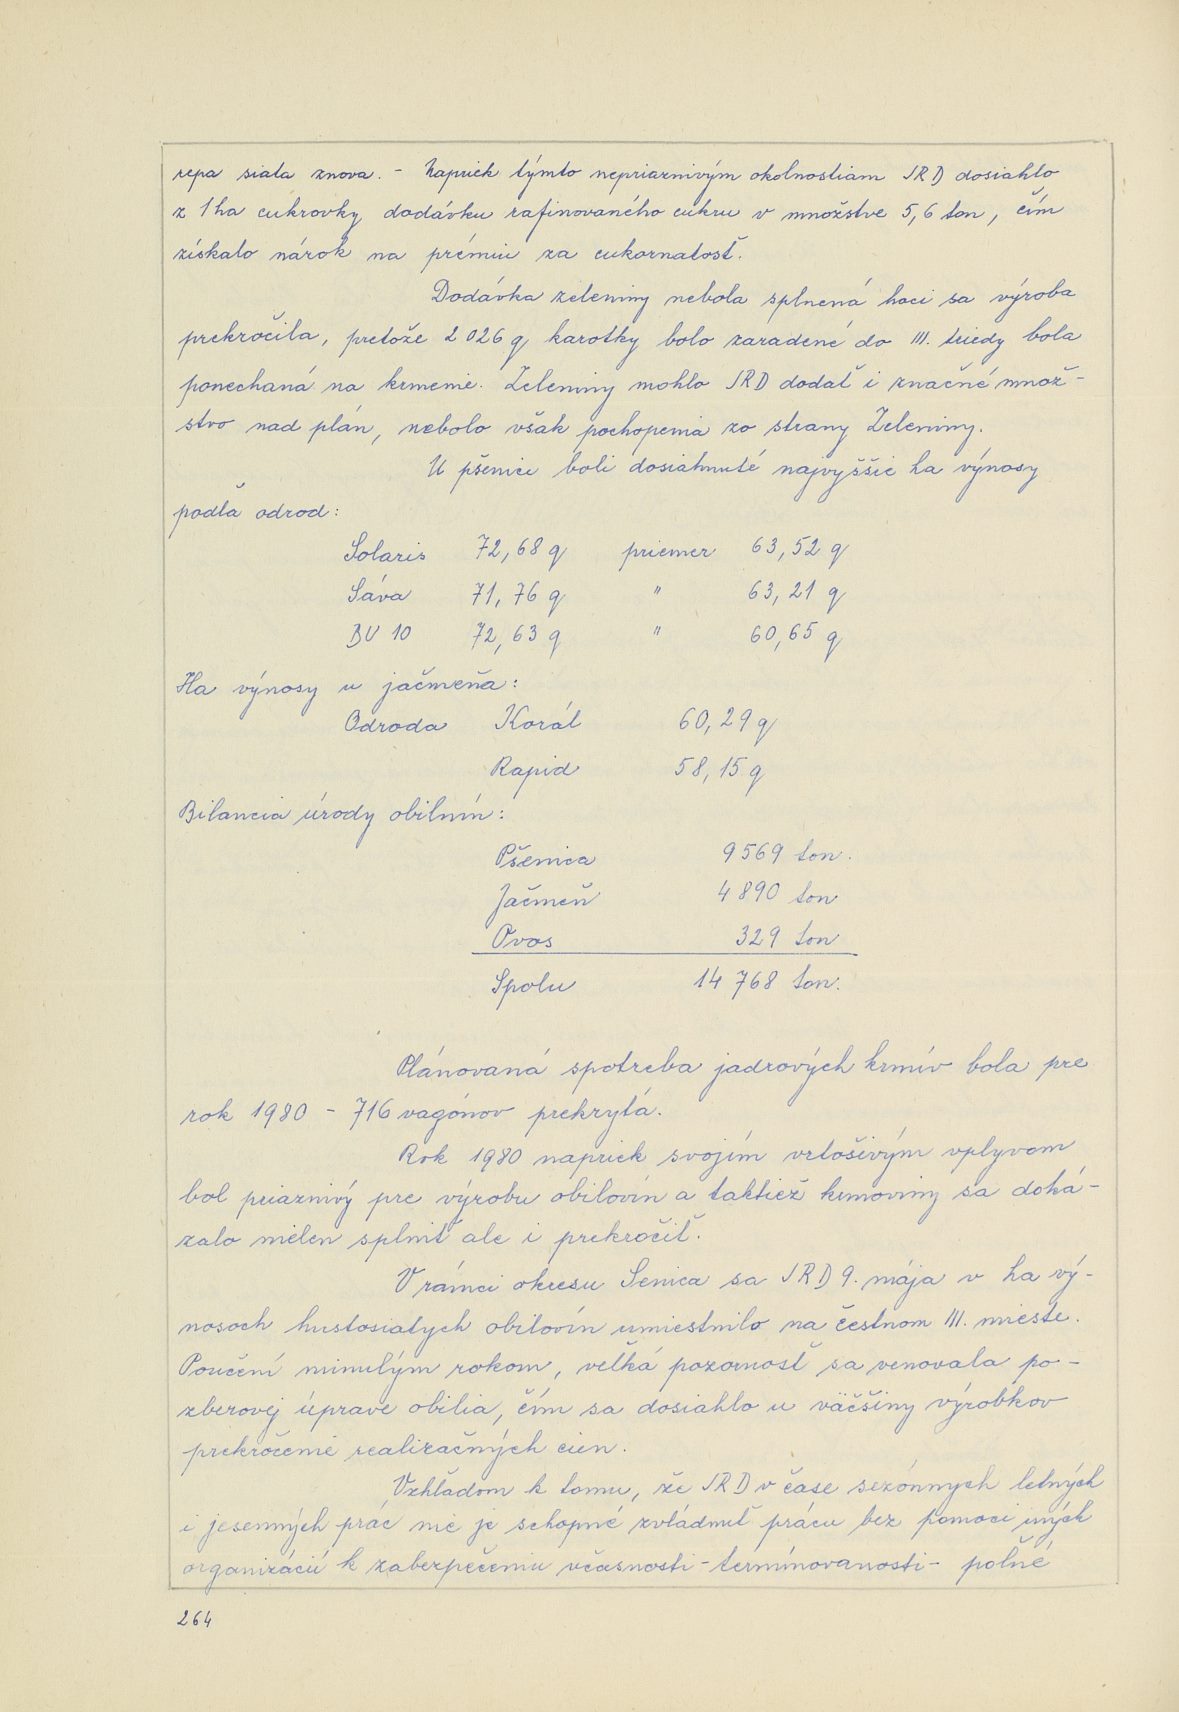 repa siata znova. - Napriek týmto nepriaznivým okolnostiam JRD dosiahlo
z 1 ha cukrovky dodávku rafinovaného cukru v množstve 5,6 ton, čím
získalo nárok na prémiu za cukornatosť.
Dodávka zeleniny nebola splnená hoci sa výroba
prekročila, pretože 2 026 q karotky bolo zaradené do III. triedy bola
ponechaná na krmenie. Zeleniny mohlo JRD dodať i značné množ-
stvo nad plán, nebolo však pochopenia zo strany Zeleniny.
U pšenice boli dosiahnuté najvyššie ha výnosy
podľa odrod:
Solaris 72,68 q priemer 63,52 q
Sáva 71,76 q " 63,21 q
BU 10 72,63 q " 60,65 q
Ha výnosy u jačmeňa:
Odroda Korál 60,29 q
Rapid 58,15 q
Bilancia úrody obilnín:
Pšenica 9 569 ton.
Jačmeň 4 890 ton
Ovos 329 ton
Spolu 14 768 ton.
Plánovaná spotreba jadrových krmív bola pre
rok 1980 - 716 vagónov prekrytá.
Rok 1980 napriek svojím vrtošivým vplyvom
bol priaznivý pre výrobu obilovín a taktiež krmoviny sa doká-
zalo nielen splniť ale i prekročiť.
V rámci okresu Senica sa JRD 9. mája v ha vý-
nosoch hustosiatych obilovín umiestnilo na čestnom III. mieste.
Poučení minulým rokom, veľká pozornosť sa venovala po-
zberovej úprave obilia, čím sa dosiahlo u väčšiny výrobkov
prekročenie realizačných cien.
Vzhľadom k tomu, že JRD v čase sezónnych letných
i jesenných prác nie je schopné zvládnuť prácu bez pomoci iných
organizácií k zabezpečeniu včasnosti - termínovanosti - poľné
264